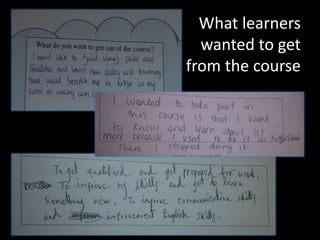 What learners
wanted to get
from the course
What do you want to get out of the course?
I would like to gain using skills and
Qualities and learn new skills and
that would benefit me to in my
I Wanted to take part in
this course is that I want
to know and learn about ICT
more because I used to do it in high School
Then I stopped doing it
To get qualified and get prepared for work.
To improve my skills and got to learn
Something new. To improve communication skills
and improvement English skills.